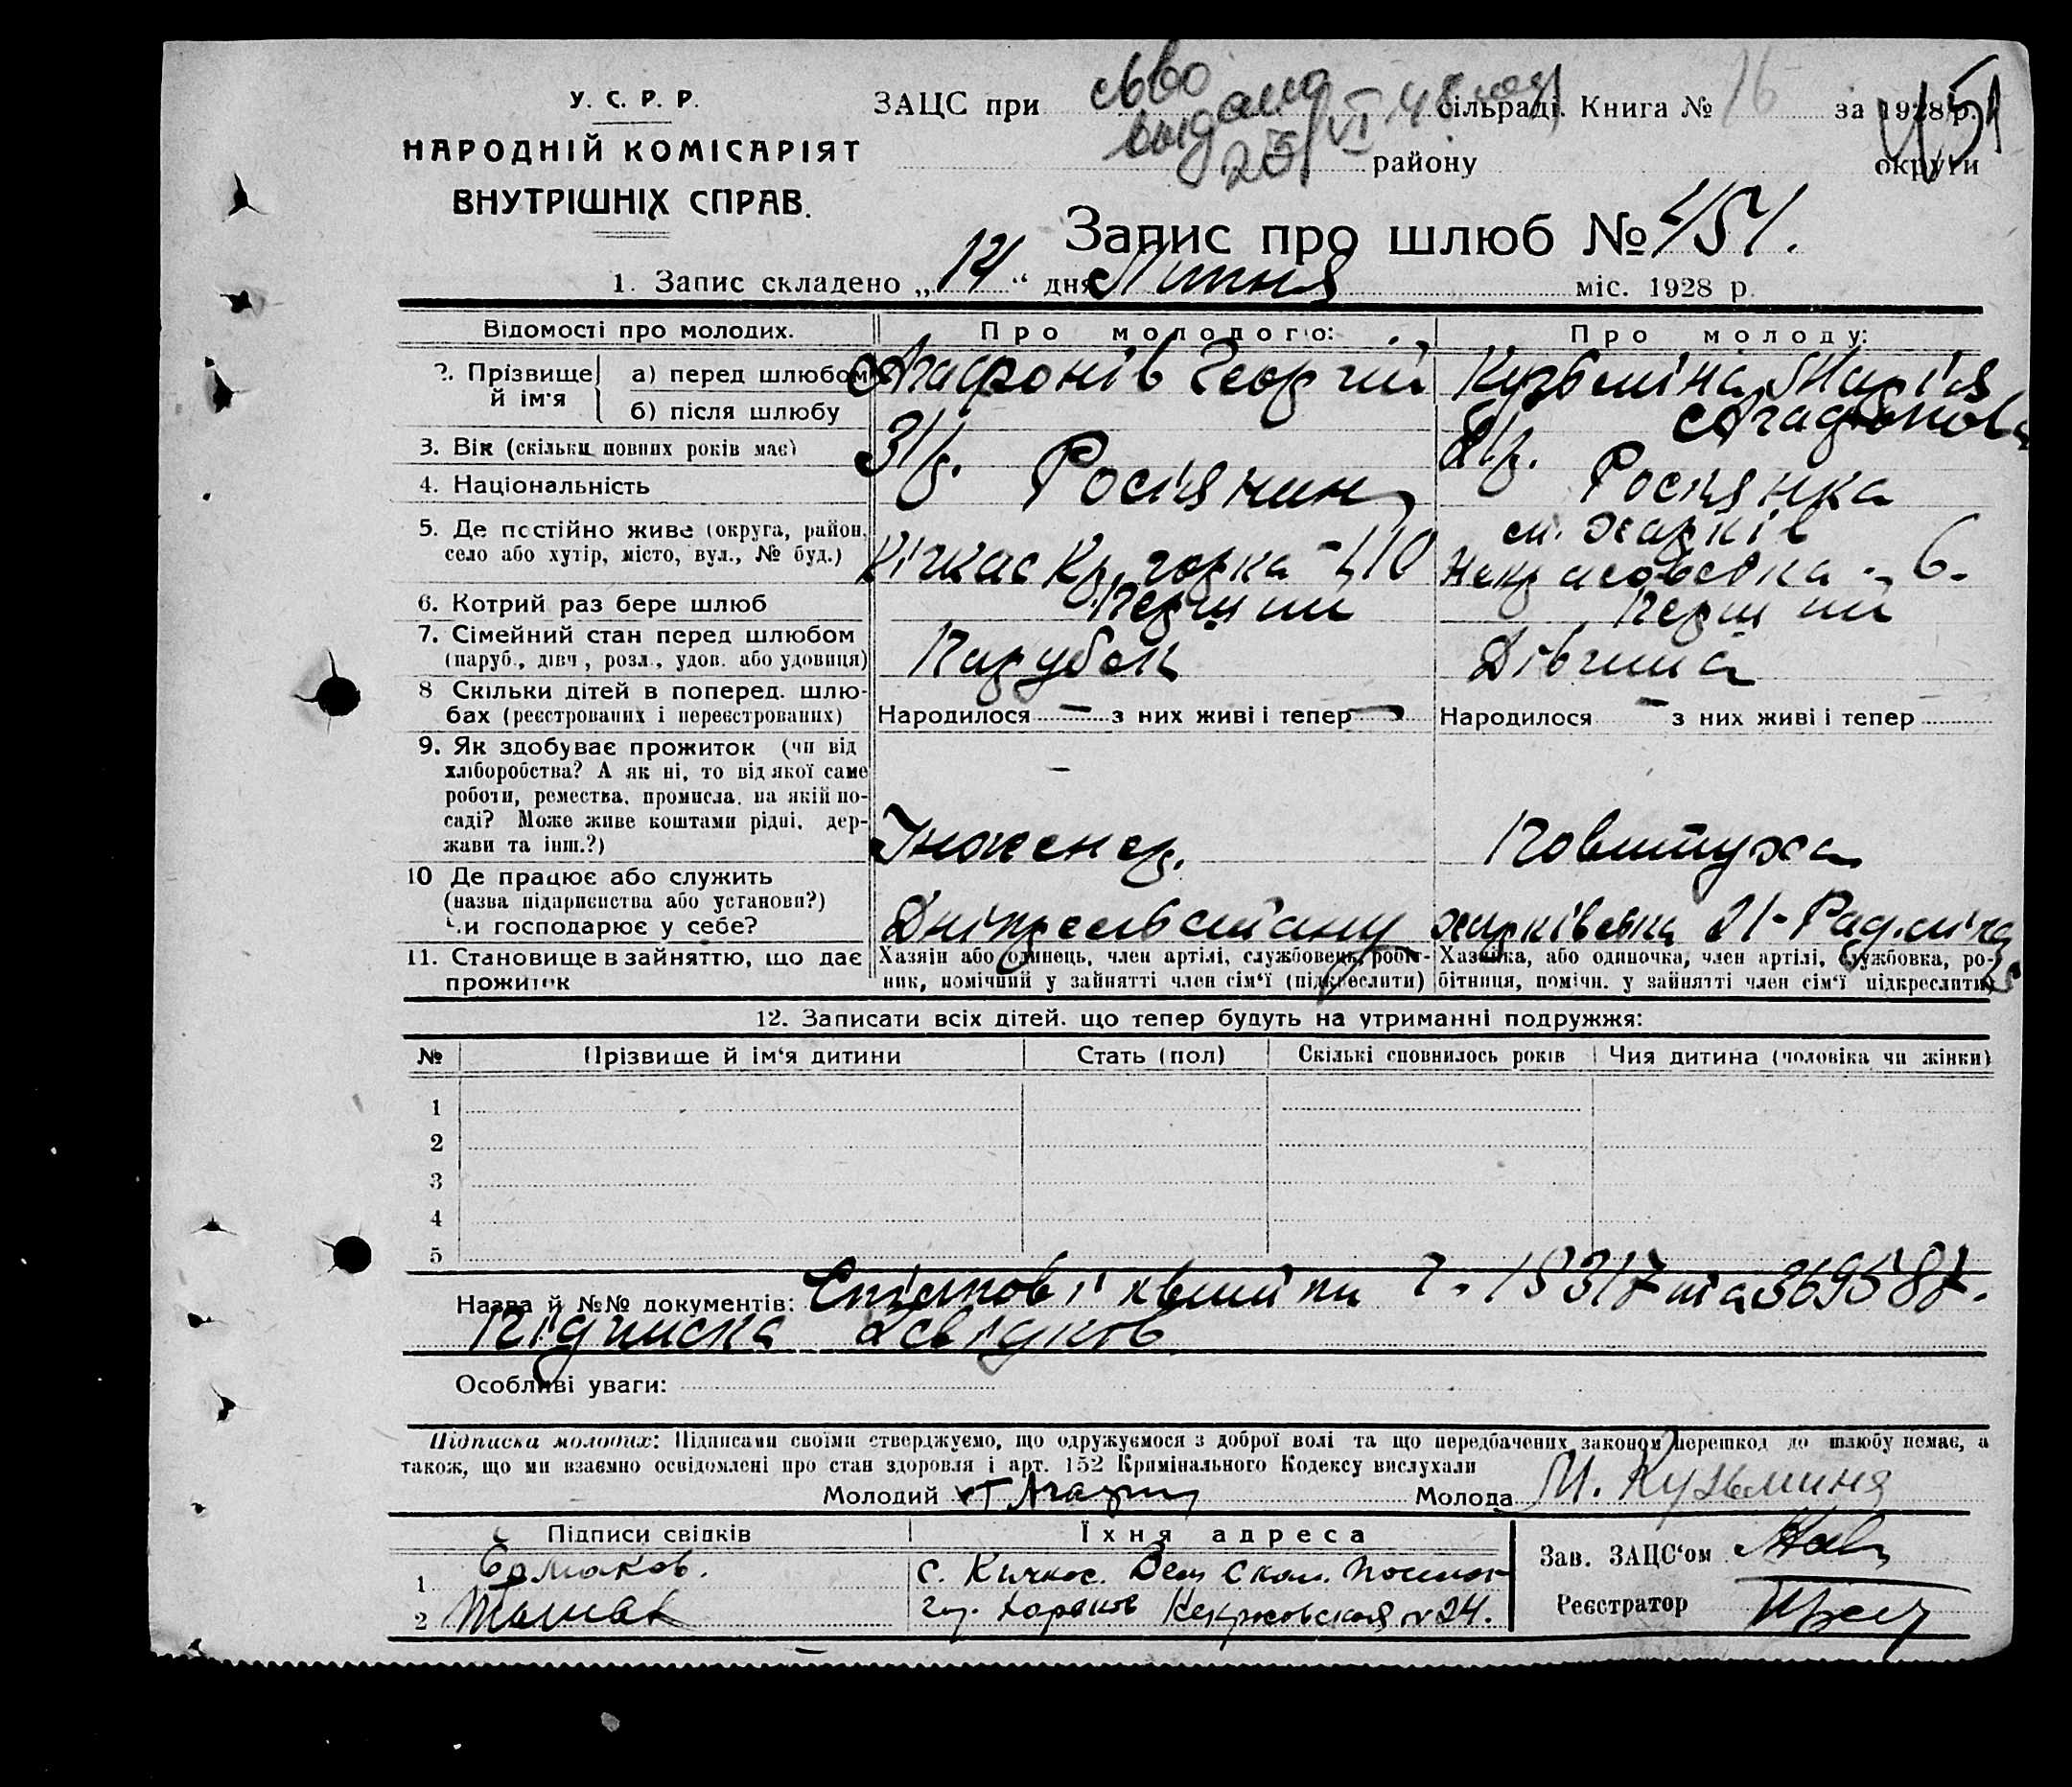 У. С. Р. Р.
НАРОДНІЙ КОМІСАРІЯТ
ВНУТРІШНІХ СПРАВ.
ЗАЦС при сільраді. Книга № 16 за 1928 р.
района округи
выдано 25/VI 48
451
Запис про шлюб № 451.
1. Запис складено „14“ дня Липня міс. 1928 р.
Відомості про молодих. Про молодого: Про молоду:
2. Прізвище й ім'я а) перед шлюбом Агафонів Георгій Кузьміна Марія
б) після шлюбу Агафонова
3. Вік (скільки повних років має) 31 р. 21 р.
4. Національність Росіянин Росіянка
5. Де постійно живе (округа, район, м. Харків
село або хутір, місто, вул., № буд.) Кічкас Кр. горка - 110 Некрасовська - 6.
6. Котрий раз бере шлюб Перший Перший
7. Сімейний стан перед шлюбом
(паруб., дівч., розл., удов. або удовиця) Парубок Дівчина
8 Скільки дітей в поперед. шлю-
бах (реєстрованих і нереєстрованих) Народилося — з них живі і тепер — Народилося — з них живі і тепер
9. Як здобуває прожиток (чи від
хліборобства? А як ні, то від якої саме
роботи, ремества, промисла, на якій по-
саді? Може живе коштами рідні, дер-
жави та інш.?) Інженер. Повитуха
10 Де працює або служить
(назва підприємства або установи?)
Чи господарює у себе? Дніпрельстану Харківська 21-Рад.
11. Становище в зайняттю, що дає Хазяїн або одинець, член артілі, службовець, робіт- Хазяйка, або одиночка, член артілі, службовка, ро-
прожиток ник, помічний у зайнятті член сім'ї (підкреслити) бітниця, помічн. у зайнятті член сім'ї підкреслити)
12. Записати всіх дітей. що тепер будуть на утриманні подружжя:
№ Прізвище й ім'я дитини Стать (пол) Скількі сповнилось років Чия дитина (чоловіка чи жінки)
1
2
3
4
5
Назва й №№ документів: квитки 18317 та 369587.
Підписка 2 свідків
Особливі уваги:
Підписка молодих: Підписами своїми стверджуємо, що одружуємося з доброї волі та що передбачених законом перешкод до шлюбу немає, а
також, що ми взаємно освідомлені про стан здоровля і арт. 152 Кримінального Кодексу вислухали
Молодий Молода М. Кузьмина
Підписи свідків Їхня адреса
1 Ермаков. с. Кичкас.
2 гор. Харьков Некрасовская № 24.
Зав. ЗАЦС'ом
Реєстратор